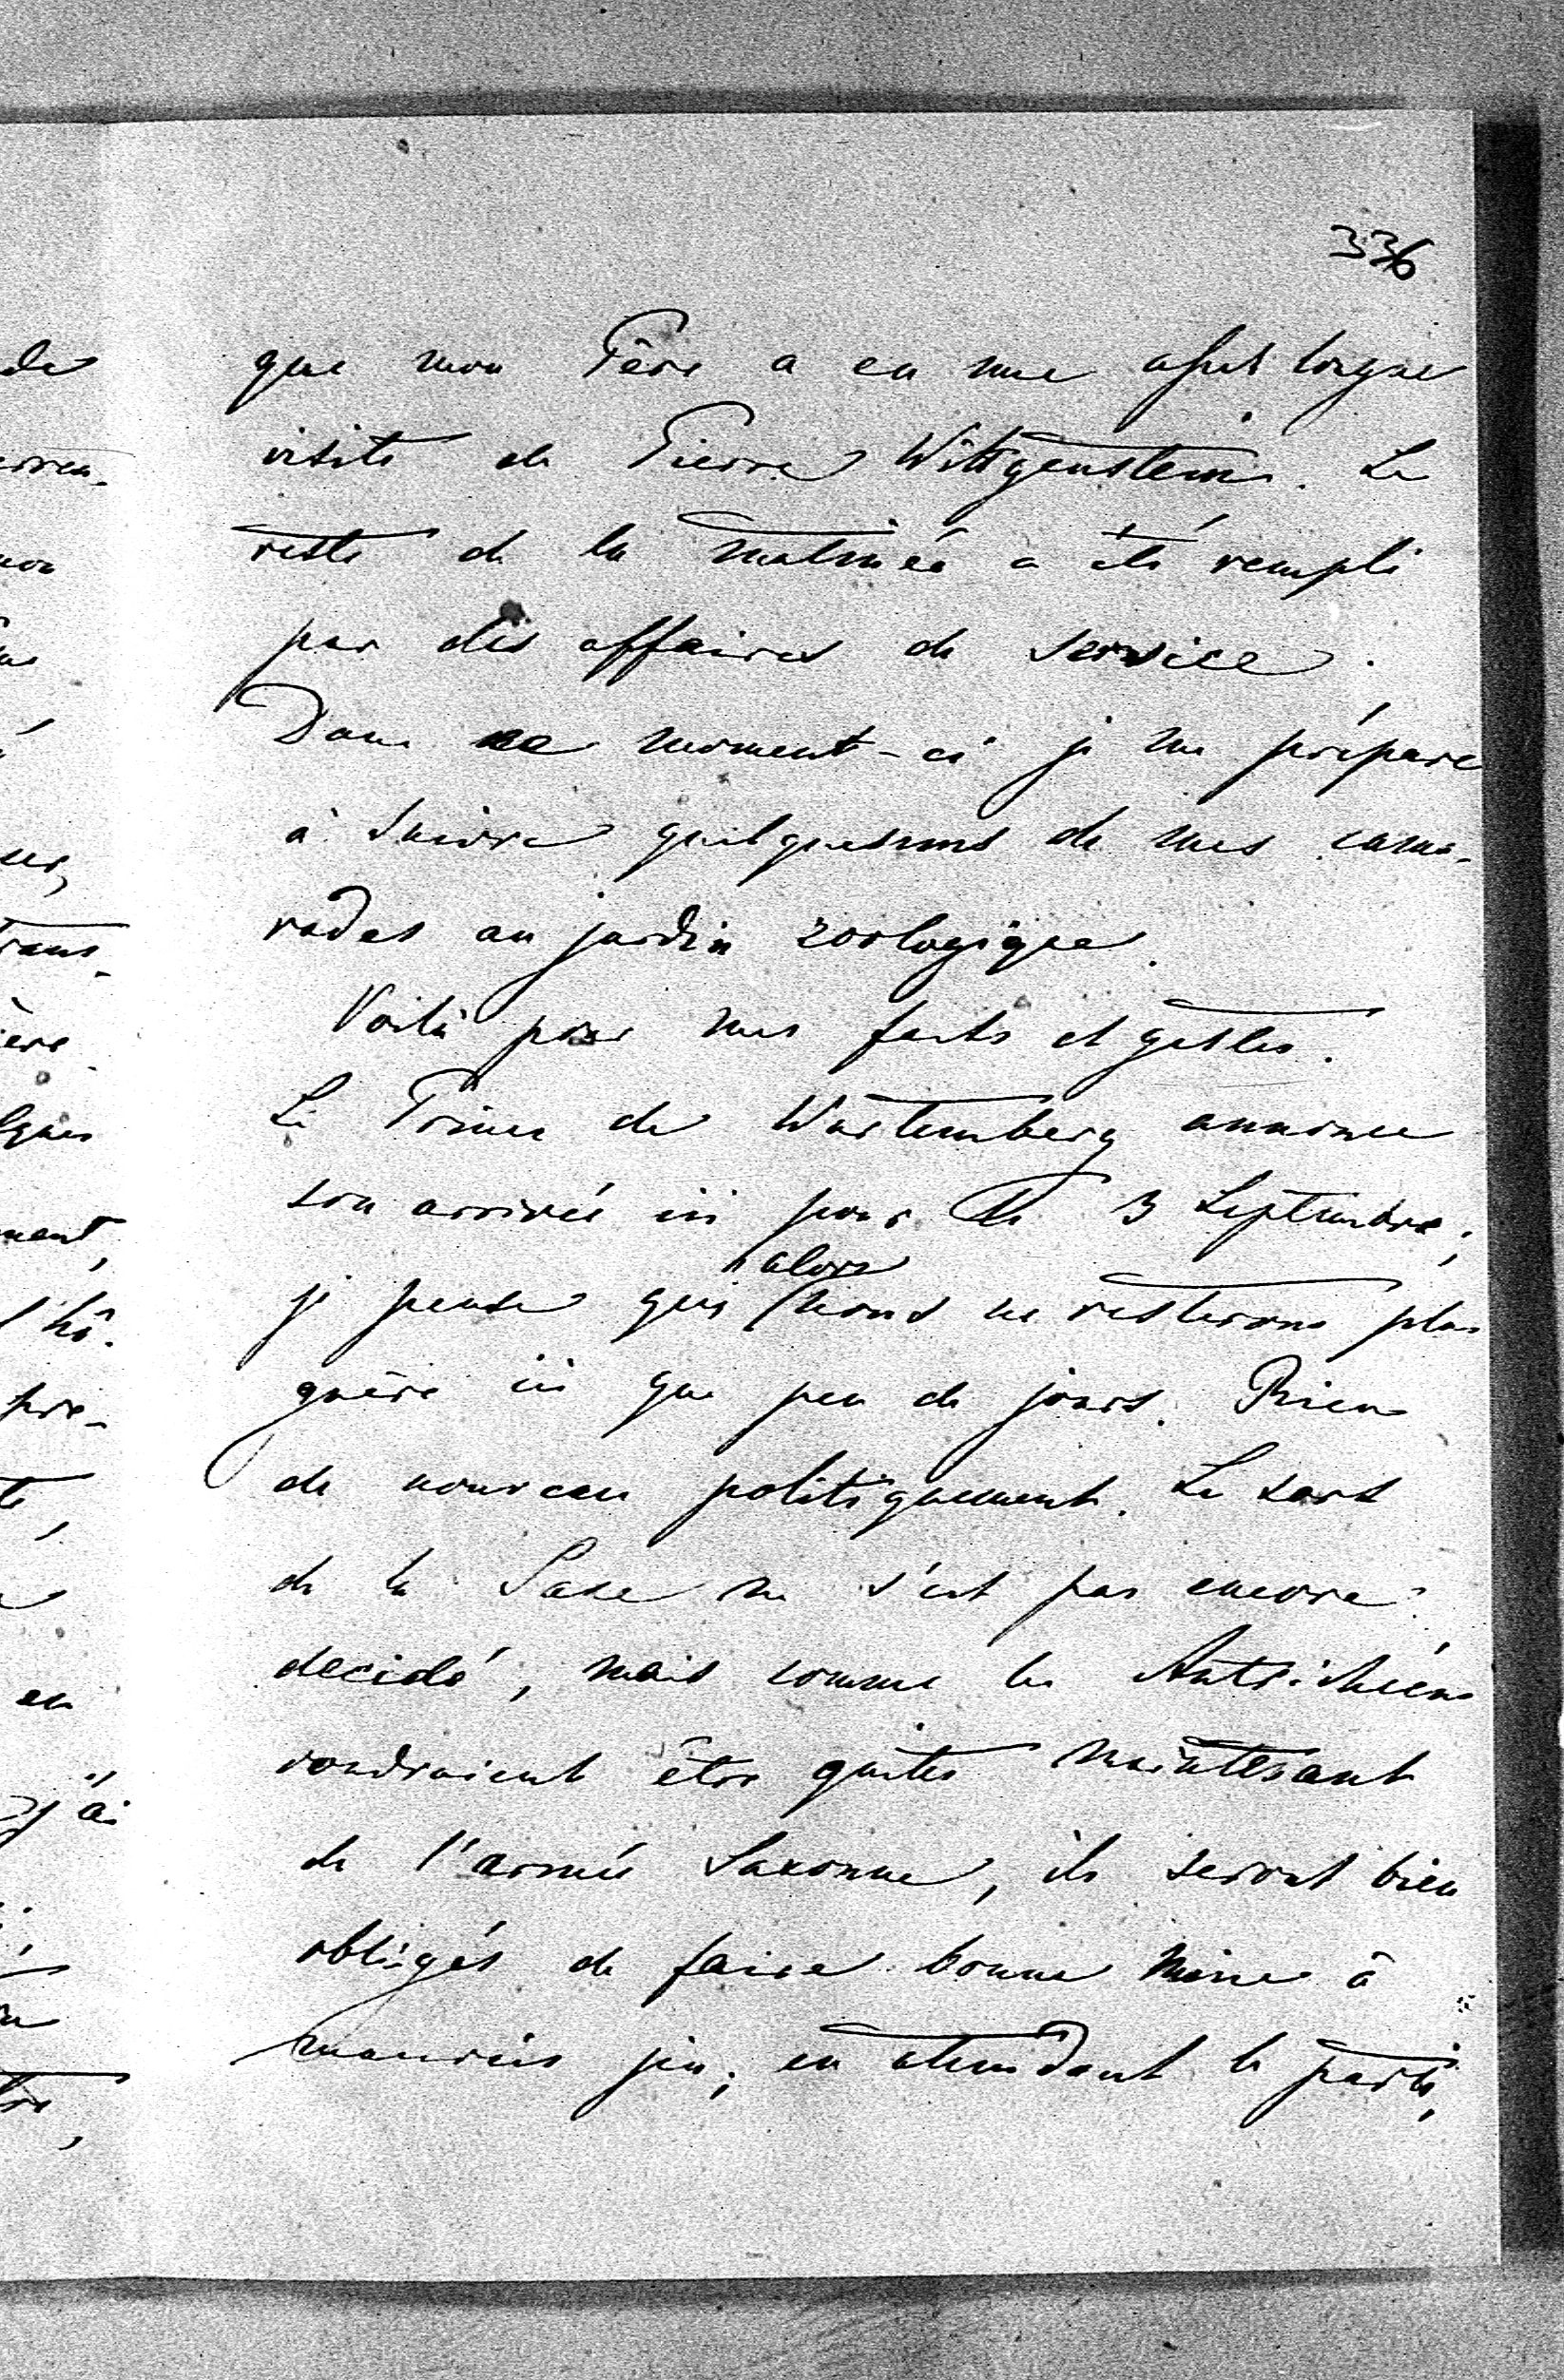 336
de
que mon Père a eu une assez longue
visite de Pierre Wittgenstein. Le
reste de la matinée a été rempli
par des affaires de service.
Dans ce moment-ci je me prépare
à suivre quelquesuns de mes cama-
rades au jardin zoologique.
Voilà pour mes faits et gestes.
Le Prince de Wurtemberg annonce
son arrivée ici pour le 3 Septembre;
alors
je pense que nous ne resterons plus
guère ici que peu de jours. Rien
de nouveau politiquement. Le sort
de la Saxe ne s'est pas encore
decidé, mais comme les Autrichiens
voudraient être quites maintenant
de l'armée Saxonne, ils seront bien
obligés de faire bonne mine à
mauvais jeu; en atendant le parti,